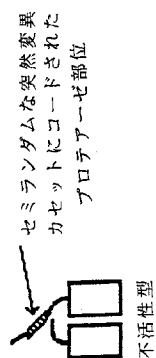 セミランダムな突然変異
カセットにコードされた
プロテアーゼ部位
不活性型